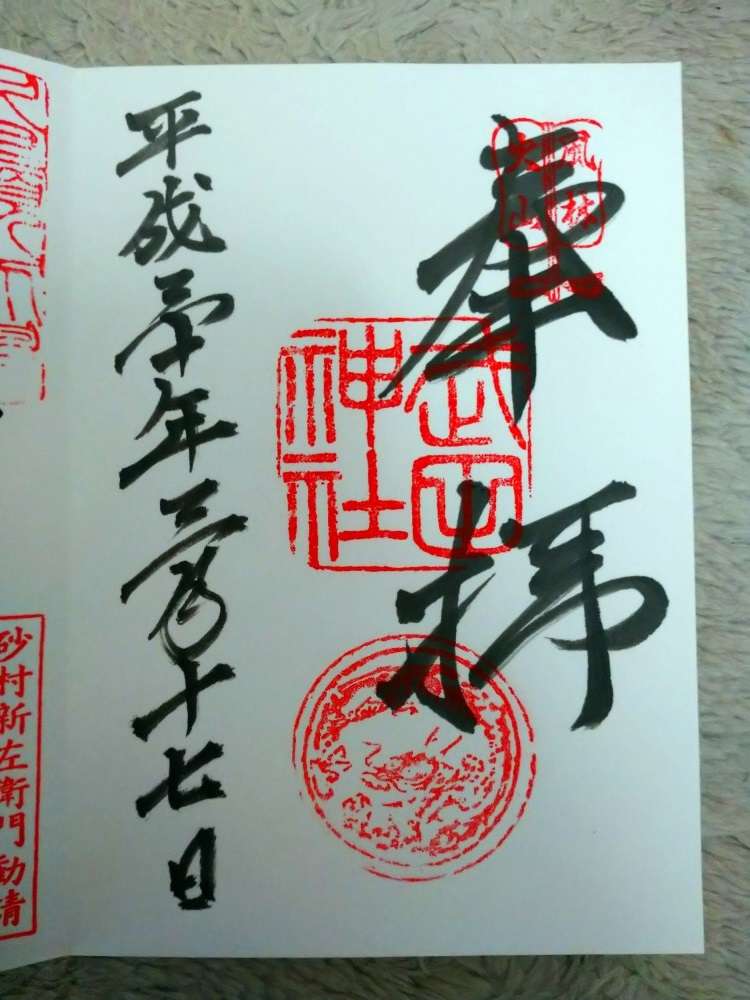 風林
火山
奉拝
武田
神社
平成三十年三月十七日
砂村新左衛門勧請